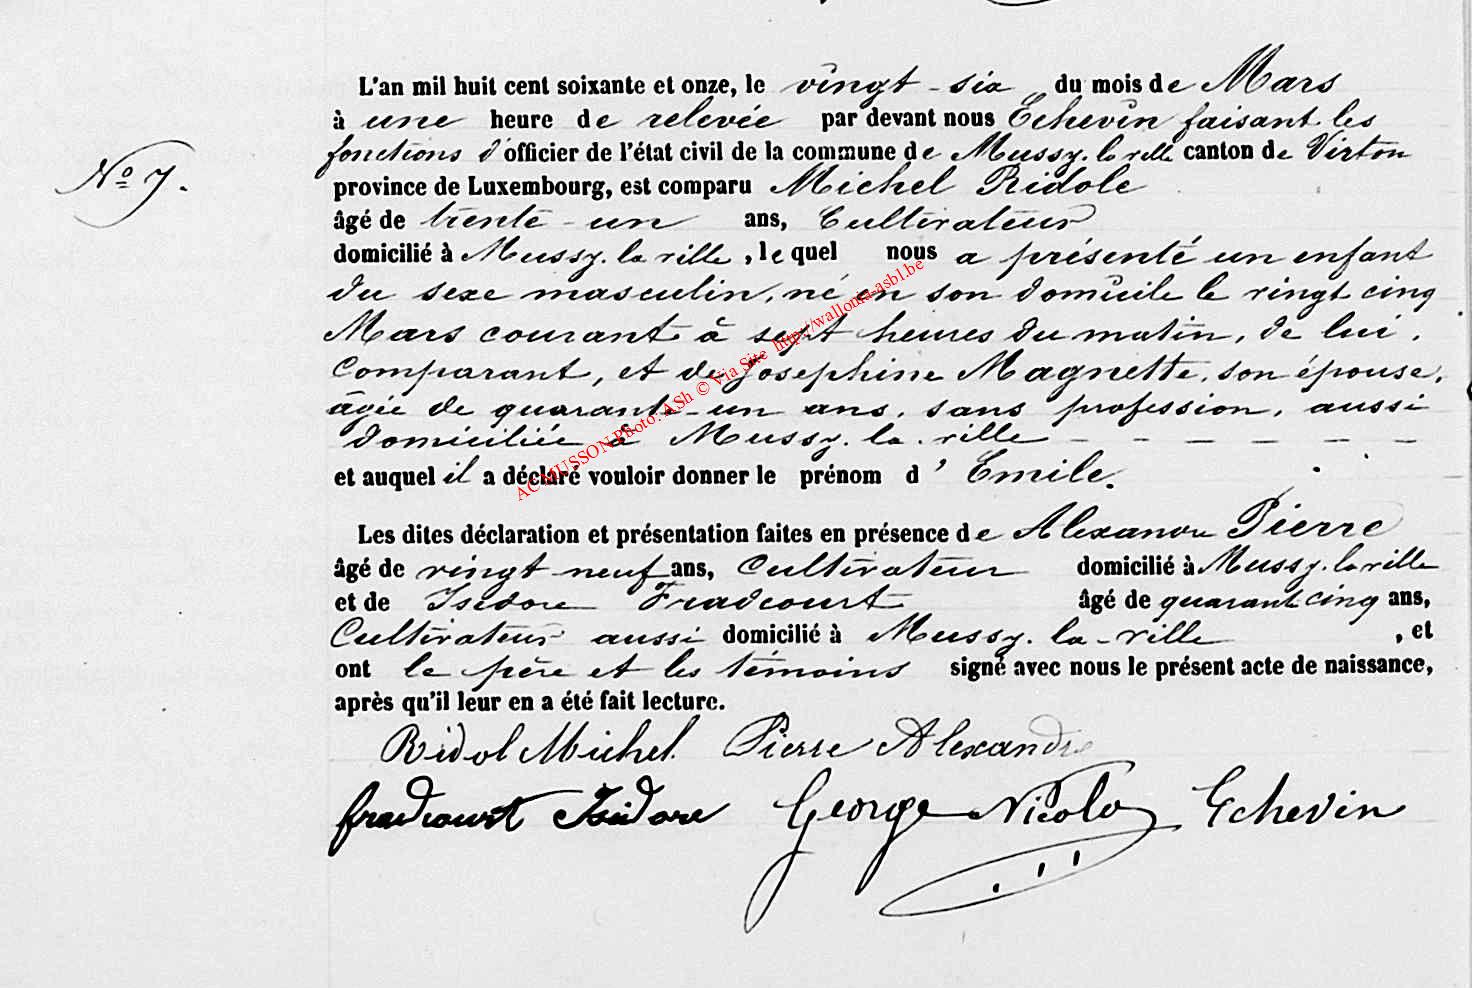 L'an mil huit cent soixante et onze, le vingt-six du mois de Mars
à une heure de relevée par devant nous Echevin faisant les
fonctions d'officier de l'état civil de la commune de Mussy-la-ville canton de Virton
N° 7.
province de Luxembourg, est comparu Michel Ridole
âgé de trente-un ans, Cultivateur
domicilié à Mussy-la-ville, lequel nous a présenté un enfant
du sexe masculin, né en son domicile le vingt cinq
Mars courant à sept heures du matin, de lui,
Comparant, et de Josephine Magnette, son épouse,
âgée de quarante-un ans, sans profession, aussi
domiciliée à Mussy-la-ville - - - - - -
et auquel il a déclaré vouloir donner le prénom d'Emile.
Les dites déclaration et présentation faites en présence de Alexandre Pierre
âgé de vingt-neuf ans, Cultivateur domicilié à Mussy-la-ville
et de Isidore Fradcourt âgé de quarante cinq ans,
Cultivateur aussi domicilié à Mussy-la-ville , et
ont le père et les témoins signé avec nous le présent acte de naissance,
après qu'il leur en a été fait lecture.
Ridol Michel. Pierre Alexandre
fradcourt Isidore George Nicolo Echevin
AC MUSSON Photo: ASh © Via Site http://wallonia-asbl.be